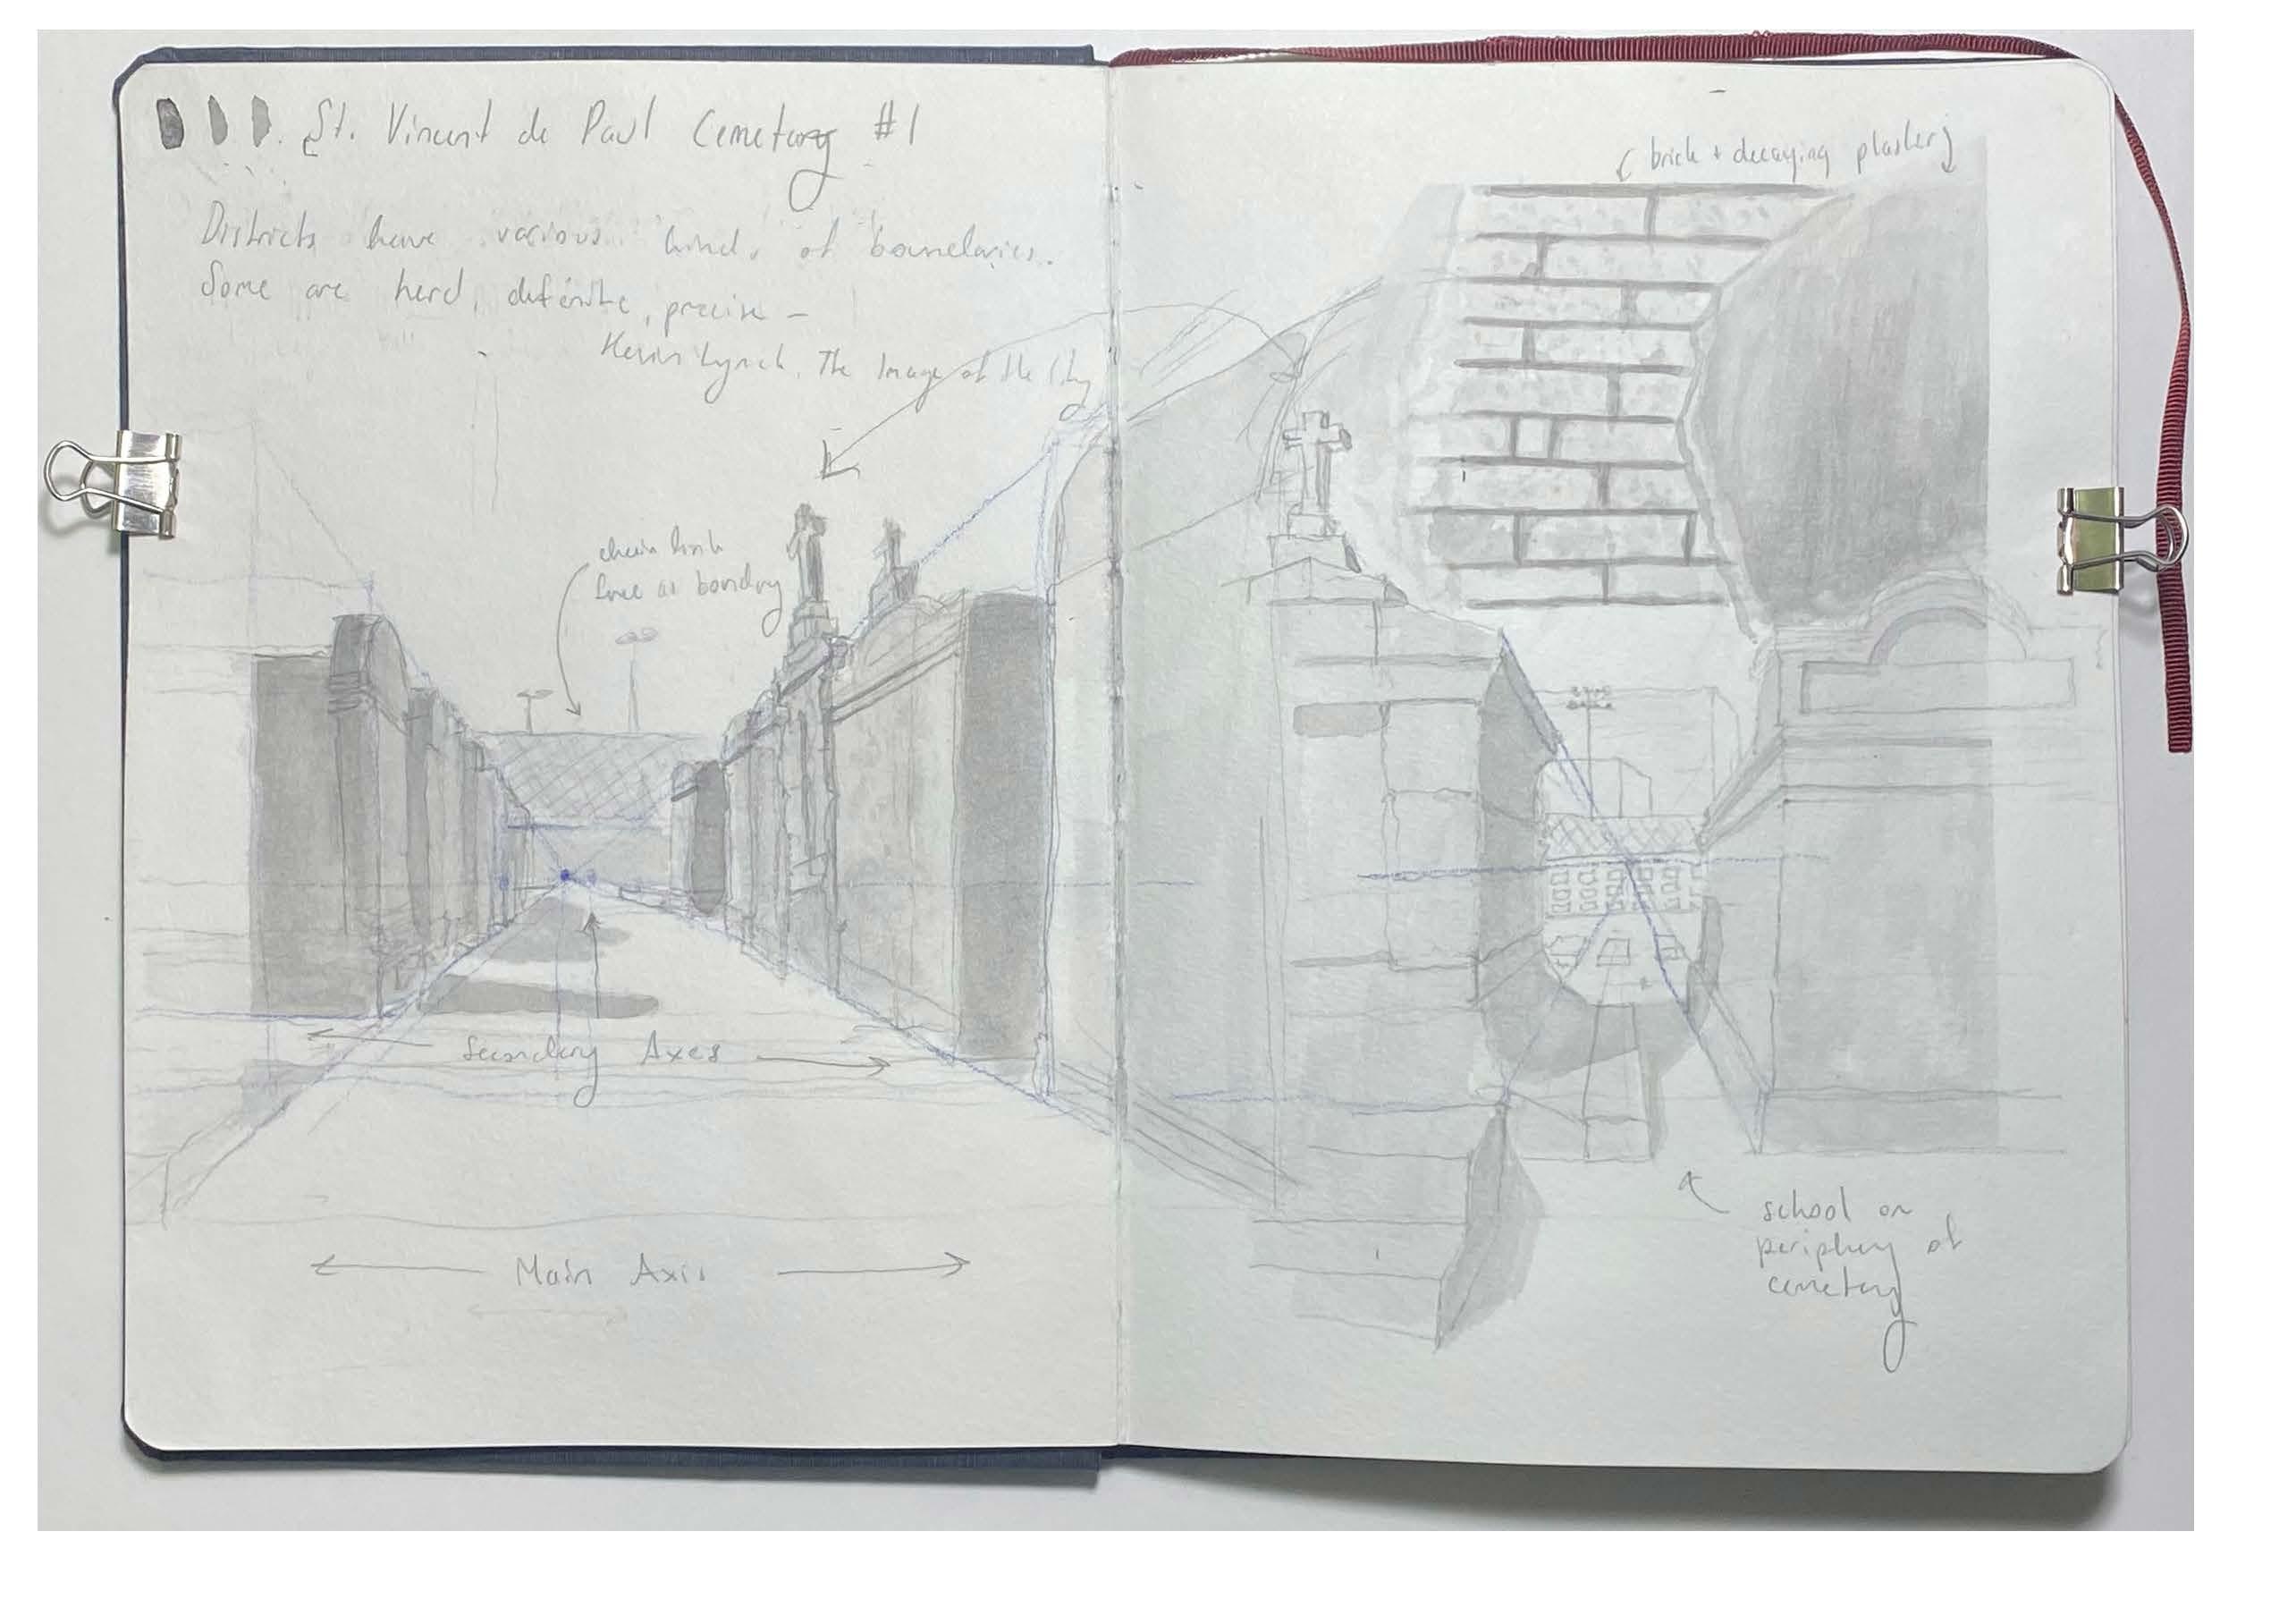 St. Vincent de Paul Cemetary #1
Districts have various kinds of boundaries.
Some are hard, definite, precise –
Kevin Lynch, The Image of the City
chain link
fence as bondry
Secondary Axes
Main Axis
brick + decaying plaster
school on
periphery of
cemetery